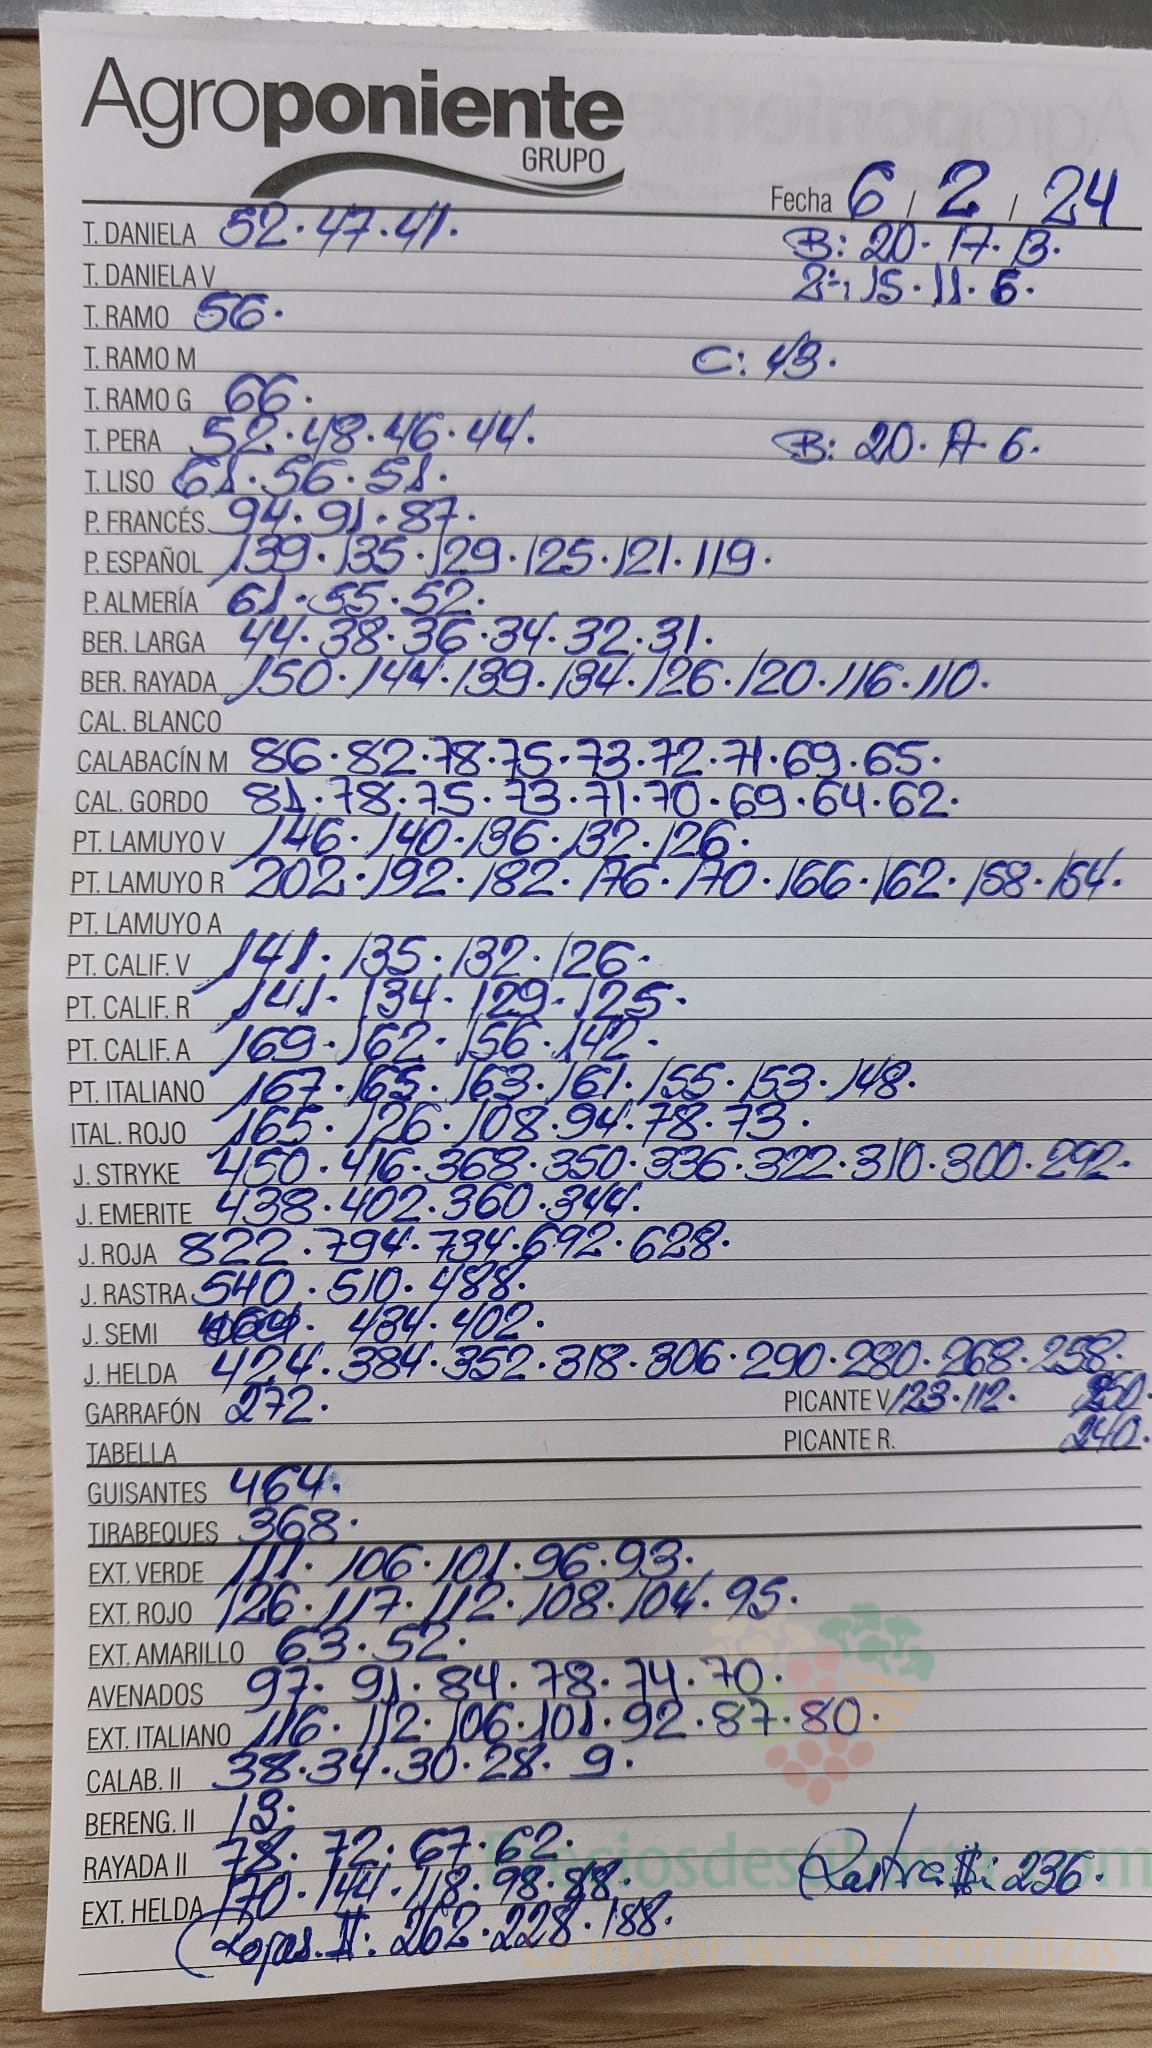 Agroponiente
GRUPO
Fecha 6 / 2 / 24
T. DANIELA 52·47·41· B: 20·17·13·
T. DANIELA V 2ª: 15·11·6·
T. RAMO 56·
T. RAMO M C: 43·
T. RAMO G 66·
T. PERA 52·48·46·44· B: 20·17·6·
T. LISO 61·56·51·
P. FRANCÉS 94·91·87·
P. ESPAÑOL 139·135·129·125·121·119·
P. ALMERÍA 61·55·52·
BER. LARGA 44·38·36·34·32·31·
BER. RAYADA 150·144·139·134·126·120·116·110·
CAL. BLANCO
CALABACÍN M 86·82·78·75·73·72·71·69·65·
CAL. GORDO 81·78·75·73·71·70·69·64·62·
PT. LAMUYO V 146·140·136·132·126·
PT. LAMUYO R 202·192·182·176·170·166·162·158·154·
PT. LAMUYO A
PT. CALIF. V 141·135·132·126·
PT. CALIF. R 141·134·129·125·
PT. CALIF. A 169·162·156·142·
PT. ITALIANO 167·165·163·161·155·153·148·
ITAL. ROJO 165·126·108·94·78·73·
J. STRYKE 450·416·368·350·336·322·310·300·292·
J. EMERITE 438·402·360·344·
J. ROJA 822·794·734·692·628·
J. RASTRA 540·510·488·
J. SEMI 434·402·
J. HELDA 424·384·352·318·306·290·280·268·258·
GARRAFÓN 272· PICANTE V 123·112· 250·
TABELLA PICANTE R. 240·
GUISANTES 464·
TIRABEQUES 368·
EXT. VERDE 111·106·101·96·93·
EXT. ROJO 126·117·112·108·104·95·
EXT. AMARILLO 63·52·
AVENADOS 97·91·84·78·74·70·
EXT. ITALIANO 116·112·106·101·92·87·80·
CALAB. II 38·34·30·28·9·
BERENG. II 13·
RAYADA II 78·72·67·62·
EXT. HELDA 170·144·118·98·88· Rastra II: 236·
Rojas II: 262·228·188·
La mayor web de hortalizas